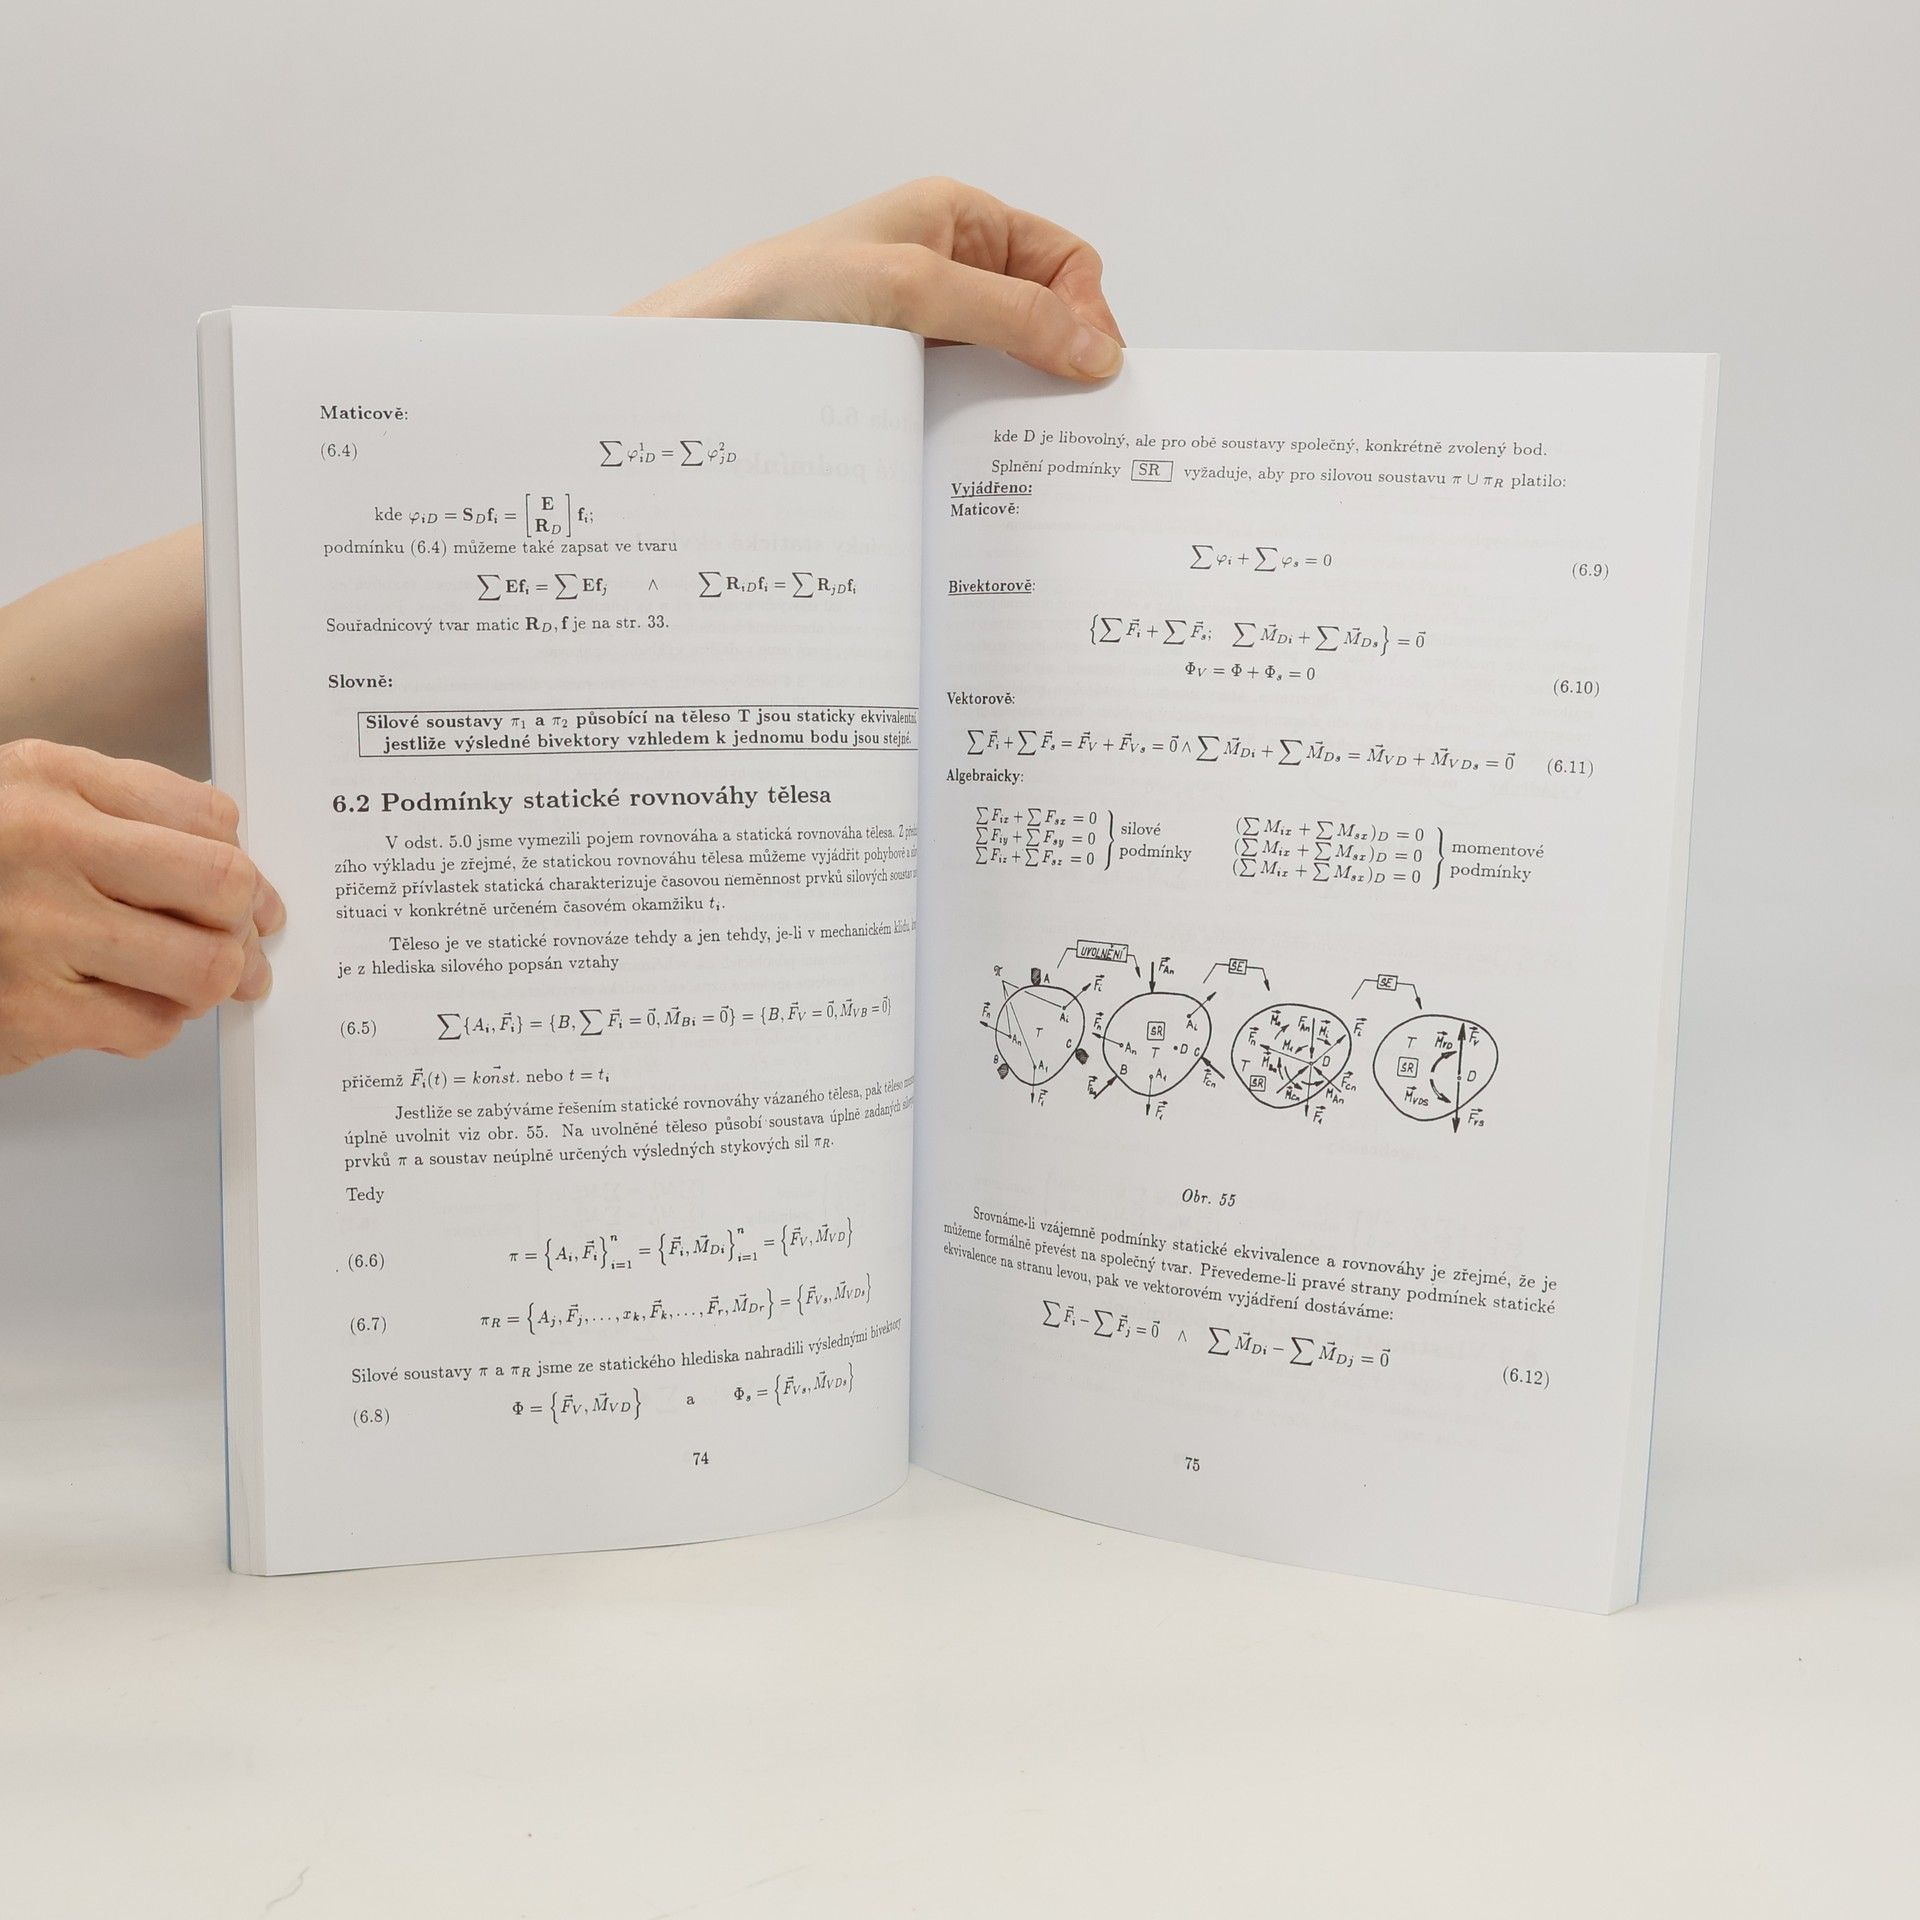 Maticově:
(6.4) ∑ φ¹ᵢD = ∑ φ²ⱼD
kde φᵢD = S_D fᵢ = [E R_D] fᵢ;
podmínku (6.4) můžeme také zapsat ve tvaru
∑ Efᵢ = ∑ Efⱼ ∧ ∑ RᵢDfᵢ = ∑ RⱼDfᵢ
Souřadnicový tvar matic R_D, f je na str. 33.
Slovně:
Silové soustavy π₁ a π₂ působící na těleso T jsou staticky
jestliže výsledné bivektory vzhledem k jednomu bodu jsou stejné.
6.2 Podmínky statické rovnováhy tělesa
V odst. 5.0 jsme vymezili pojem rovnováha a statická rovnováha tělesa. Z
zího výkladu je zřejmé, že statickou rovnováhu tělesa můžeme vyjádřit pohybově a
přičemž přívlastek statická charakterizuje časovou neměnnost prvků silových
situaci v konkrétně určeném časovém okamžiku tᵢ.
Těleso je ve statické rovnováze tehdy a jen tehdy, je-li v mechanickém klidu,
je z hlediska silového popsán vztahy
(6.5) ∑{Aᵢ, F⃗ᵢ} = {B, ∑ F⃗ᵢ = 0⃗, M⃗Bᵢ = 0⃗} = {B, F⃗V = 0⃗, M⃗VB = 0⃗}
přičemž F⃗ᵢ(t) = konst. nebo t = tᵢ
Jestliže se zabýváme řešením statické rovnováhy vázaného tělesa, pak těleso
úplně uvolnit viz obr. 55. Na uvolněné těleso působí soustava úplně zadaných
prvků π a soustav neúplně určených výsledných stykových sil πR.
Tedy
(6.6) π = {Aᵢ, F⃗ᵢ}ⁿᵢ₌₁ = {F⃗ᵢ, M⃗Dᵢ}ⁿᵢ₌₁ = {F⃗V, M⃗VD}
(6.7) πR = {Aⱼ, F⃗ⱼ, ..., xₖ, F⃗ₖ, ..., F⃗ᵣ, M⃗Dᵣ} = {F⃗Vs, M⃗VDs}
Silové soustavy π a πR jsme ze statického hlediska nahradili výslednými bivektory
(6.8) Φ = {F⃗V, M⃗VD} a Φs = {F⃗Vs, M⃗VDs}
74
kde D je libovolný, ale pro obě soustavy společný, konkrétně zvolený bod.
Splnění podmínky SR vyžaduje, aby pro silovou soustavu π ∪ πR platilo:
Vyjádřeno:
Maticově:
∑ φᵢ + ∑ φs = 0 (6.9)
Bivektorově:
{∑ F⃗ᵢ + ∑ F⃗s; ∑ M⃗Dᵢ + ∑ M⃗Ds} = 0⃗
ΦV = Φ + Φs = 0 (6.10)
Vektorově:
∑ F⃗ᵢ + ∑ F⃗s = F⃗V + F⃗Vs = 0⃗ ∧ ∑ M⃗Dᵢ + ∑ M⃗Ds = M⃗VD + M⃗VDs = 0⃗ (6.11)
Algebraicky:
∑ Fix + ∑ Fsx = 0 (∑ Mix + ∑ Msx)D = 0
∑ Fiy + ∑ Fsy = 0 silové (∑ Mix + ∑ Msx)D = 0 momentové
∑ Fiz + ∑ Fsz = 0 podmínky (∑ Mix + ∑ Msx)D = 0 podmínky
UVOLNĚNÍ SE SE
π A F⃗i Ai F⃗n An T C B A1 F⃗1
F⃗An Ai F⃗n An SR T D C B A1 F⃗Bn F⃗Cn F⃗1
F⃗An F⃗i F⃗n D T SR F⃗Cn M⃗An F⃗1
T M⃗VD F⃗V SR D M⃗VDS F⃗VS
Obr. 55
Srovnáme-li vzájemně podmínky statické ekvivalence a rovnováhy je zřejmé, že je
můžeme formálně převést na společný tvar. Převedeme-li pravé strany podmínek statické
ekvivalence na stranu levou, pak ve vektorovém vyjádření dostáváme:
∑ F⃗ᵢ − ∑ F⃗ⱼ = 0⃗ ∧ ∑ M⃗Dᵢ − ∑ M⃗Dⱼ = 0⃗
(6.12)
75